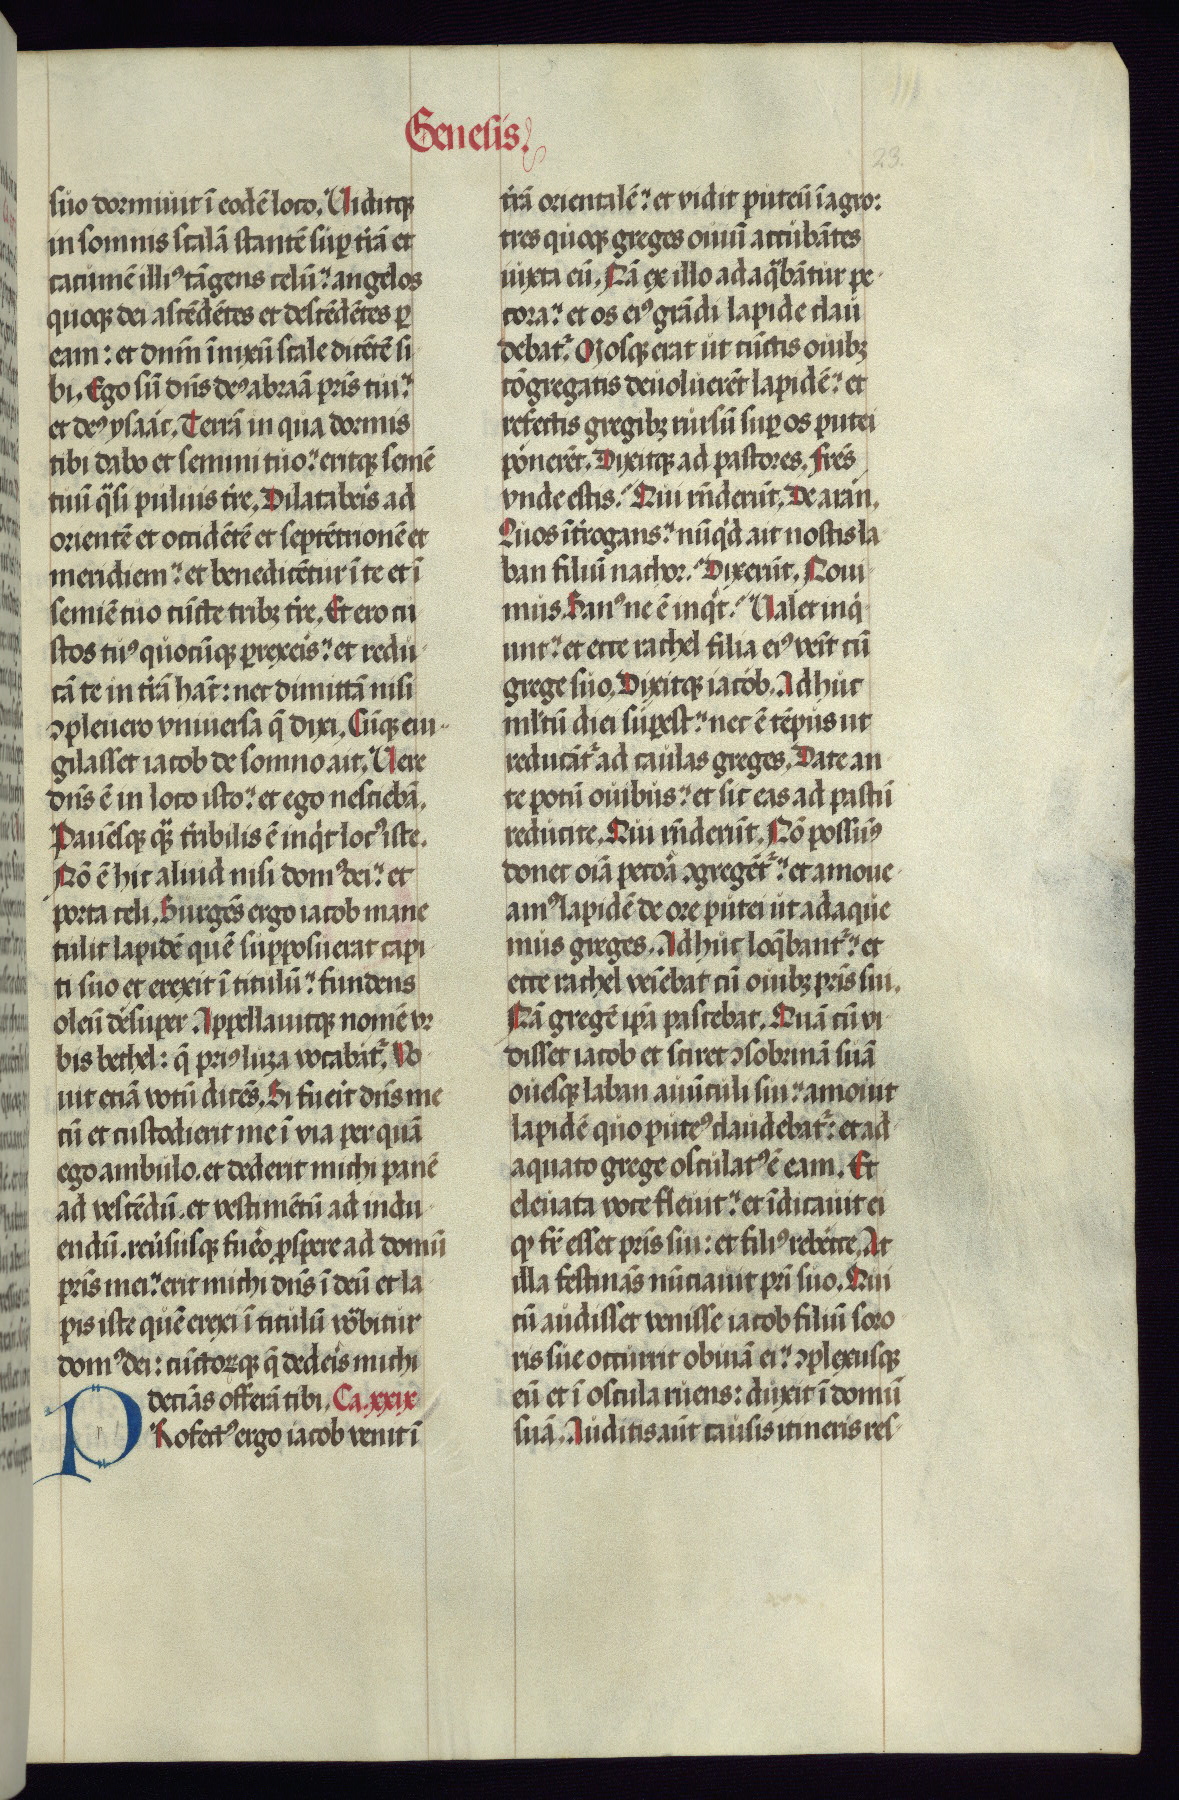 Genesis.
23.
suo dormiuit ī eodē loco. Uiditqꝫ
in somnis scalā stantē suꝑ t̄rā et
cacumē illiꝰ tāgens celū: angelos
quoqꝫ dei ascēdētes et descēdētes ꝑ
eam: et dn̄m īnixū scale dicētē si
bi. Ego sū dn̄s deꝰ abraā pr̄is tui:
et deꝰ ysaac. Terrā in qua dormis
tibi dabo et semini tuo: eritqꝫ semē
tuū qͣsi puluis t̄re. Dilataberis ad
orientē et occidētē et septētrionē et
meridiem: et benedicētur ī te et ī
semīe tuo cūcte tribꝫ t̄re. Et ero cu
stos tuꝰ quocūqꝫ ꝑrexeris: et redu
cā te in t̄rā hāc: nec dimittā nisi
ꝯpleuero vniuersa q̄ dixi. Cūqꝫ eui
gilasset iacob de somno ait. Uere
dn̄s ē in loco isto: et ego nesciebā.
Pauēsqꝫ qͣꝫ t̄ribilis ē inqͥt locꝰ iste.
Nō ē hic aliud nisi domꝰ dei: et
porta celi. Surgēs ergo iacob mane
tulit lapidē quē supposuerat capi
ti suo et erexit ī titulū: fundens
oleū desuper. Appellauitqꝫ nomē vr
bis bethel: q̄ priꝰ luza vocabat᷑. Vo
uit etiā votū dicēs. Si fuerit dn̄s me
cū et custodierit me ī via per quā
ego ambulo. et dederit michi panē
ad vescēdū. et vestimētū ad indu
endū. reūsusqꝫ fuero ꝓspere ad domū
pr̄is mei: erit michi dn̄s ī deū et la
pis iste quē erexi ī titulū vocͣbitur
domꝰ dei: cūctorꝫqꝫ q̄ dederis michi
decīas offerā tibi. Ca. xxix
PRofectꝰ ergo iacob venit ī
t̄rā orientalē: et vidit puteū ī agro:
tres quoqꝫ greges ouiū accubātes
iuxta eū. Nā ex illo adaqͣbātur pe
cora: et os eiꝰ grādi lapide clau
debat᷑. Mosqꝫ erat ut cūctis ouibꝫ
cōgregatis deuoluerēt lapidē: et
refectis gregibꝫ rursū suꝑ os putei
ponerēt. Dixitqꝫ ad pastores. Fr̄es
vnde estis. Qui rn̄derūt. De aran.
Quos īt̄rogans: nūqͥd ait nostis la
ban filiū nachor. Dixerūt. Noui
mus. Sanꝰ ne ē inqͥt. Ualet inqͥ
unt: et ecce rachel filia eiꝰ veīt cū
grege suo. Dixitqꝫ iacob. Adhuc
ml̄tū diei suꝑest: nec ē tēpus ut
reducāt᷑ ad caulas greges. Date an
te potū ouibus: et sic eas ad pastū
reducite. Qui rn̄derūt. Nō possumꝰ
donec oīa pecora ꝯgregēt᷑: et amoue
amꝰ lapidē de ore putei ut adaque
mus greges. Adhuc loq̄bant᷑: et
ecce rachel veīebat cū ouibꝫ pr̄is sui.
Nā gregē ip̄a pascebat. Quā cū vi
disset iacob et sciret ꝯsobrinā suā
ouesqꝫ laban auūculi sui: amouit
lapidē quo puteꝰ claudebat᷑: et ad
aquato grege osculatꝰ ē eam. Et
eleuata voce fleuit: et īdicauit ei
ꝙ fr̄ esset pr̄is sui: et filiꝰ rebecce. At
illa festinās nūciauit pr̄i suo. Qui
cū audisset venisse iacob filiū soro
ris sue occurrit obuiā ei: ꝯplexusqꝫ
eū et ī oscula ruens: duxit ī domū
suā. Auditis aūt causis itineris res